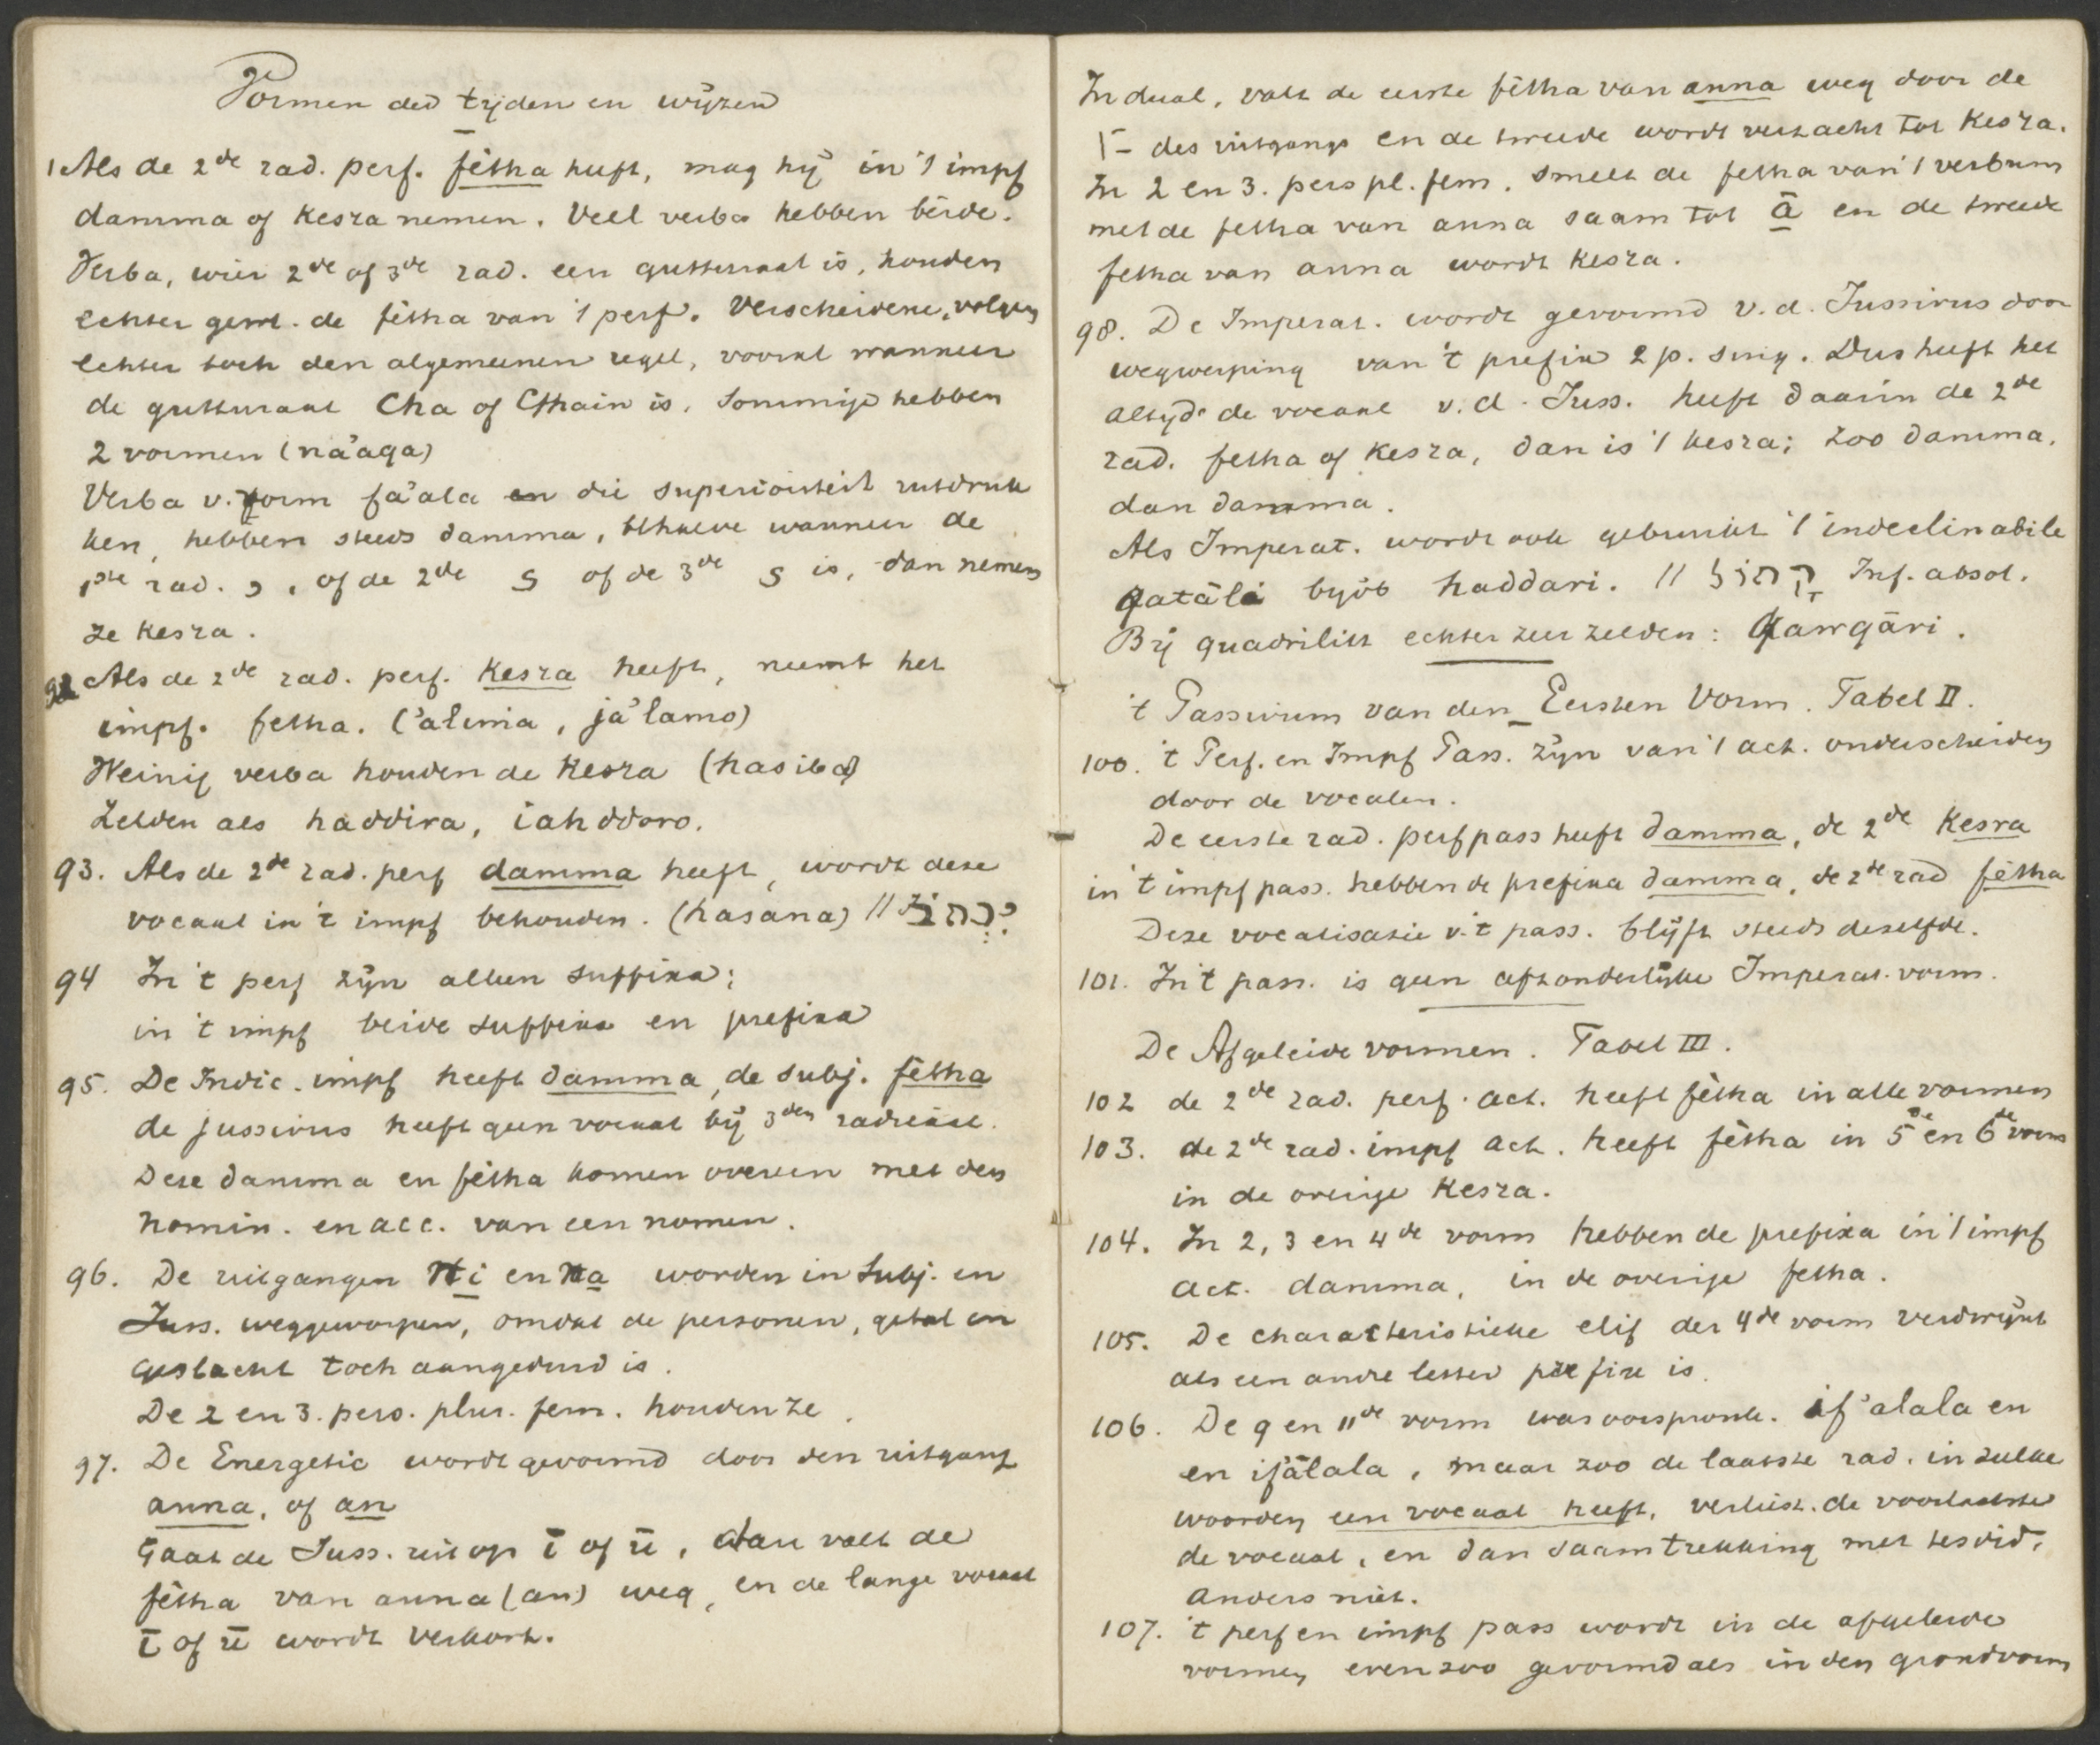 Vormen der tijden en wijzen
1 Als de 2de rad. perf. fètha heeft, mag hij in 't impf
damma of kesra nemen. Veel verba hebben beide.
Verba, wier 2de of 3de rad. een gutturaal is, houden
echter gew. de fètha van 't perf. Verscheidene, volgen
echter toch den algemeenen regel, vooral wanneer
de gutturaal Cha of Ghain is. Sommige hebben
2 vormen (ná'aqa)
Verba v. form fa'ala en die superioriteit uitdruk
ken, hebben steeds damma, behalve wanneer de
1ste rad. و, of de 2de ى of de 3de ى is, dan nemen
ze kesra.
92 Als de 2de rad. perf. kesra heeft, neemt het
impf. fetha. ('alima, jà'lamo)
Weinig verba houden de kesra (hasiba)
Zelden als haddira, iahddoro.
93. Als de 2de rad. perf damma heeft, wordt deze
vocaal in 't impf behouden. (hasana) //
94 In 't perf zijn alleen suffixa;
in 't impf beide suffixa en prefixa
95. De Indic. impf heeft damma, de subj. fètha
de jussivus heeft geen vocaal bij 3den radicaal.
Deze damma en fètha komen overeen met den
nomin. en acc. van een nomen.
96. De uitgangen ni en na worden in Subj. en
Juss. weggeworpen, omdat de personen, getal en
geslacht toch aangeduid is.
De 2 en 3. pers. plur. fem. houden ze.
97. De Energetic wordt gevormd door den uitgang
anna, of an
Gaat de Juss. uit op ī of ū, dan valt de
fètha van anna (an) weg, en de lange vocaal
ī of ū wordt verkort.
In dual, valt de eerste fètha van anna weg door de
ا- des uitgangs en de tweede wordt verzacht tot kesra.
In 2 en 3. pers pl. fem. smelt de fetha van 't verbum
met de fetha van anna saam tot ā en de tweede
fetha van anna wordt kesra.
98. De Imperat. wordt gevormd v. d. Jussivus door
wegwerping van 't prefix 2 p. sing. Dus heeft het
altijd de vocaal v. d. Juss. heeft daarin de 2de
rad. fetha of kesra, dan is 't kesra; zoo damma,
dan damma.
Als Imperat. wordt ook gebruikt 't indeclinabile
qatāli bijv. haddari. // קָהוֹל Inf. absol.
Bij quadrilitt echter zeer zelden: qarqāri.
't Passivum van den Eersten Vorm. Tabel II.
100. 't Perf. en Impf Pass. zijn van 't act. onderscheiden
door de vocalen.
De eerste rad. perf pass heeft damma, de 2de kesra
in 't impf pass. hebben de prefixa damma, de 2de rad fètha
Deze vocalisatie v. 't pass. blijft steeds dezelfde.
101. In 't pass. is geen afzonderlijke Imperat. vorm.
De Afgeleide vormen. Tabel III.
102 de 2de rad. perf. act. heeft fètha in alle vormen
103. de 2de rad. impf act. heeft fètha in 5de en 6de vorm
in de overige kesra.
104. In 2, 3 en 4de vorm hebben de prefixa in 't impf
act. damma, in de overige fetha.
105. De characteristieke elif der 4de vorm verdwijnt
als een andre letter prefix is.
106. De 9 en 11de vorm was oorspronk. if'alala en
en ifālala, maar zoo de laatste rad. in zulke
woorden een vocaal heeft, verliest de voorlaatste
de vocaal, en dan saamtrekking met tesdid,
anders niet.
107. 't perf en impf pass wordt in de afgeleide
vormen evenzoo gevormd als in den grondvorm